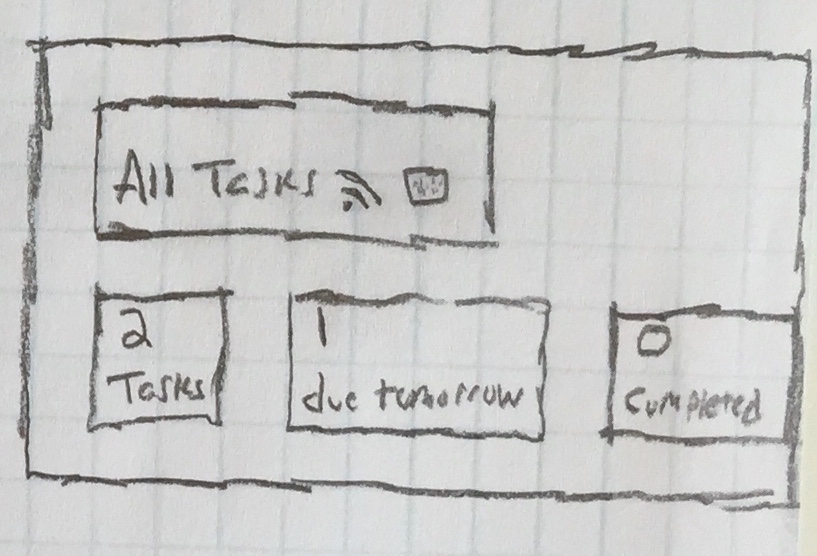 All Tasks
2
Tasks
1
due tomorrow
0
Completed